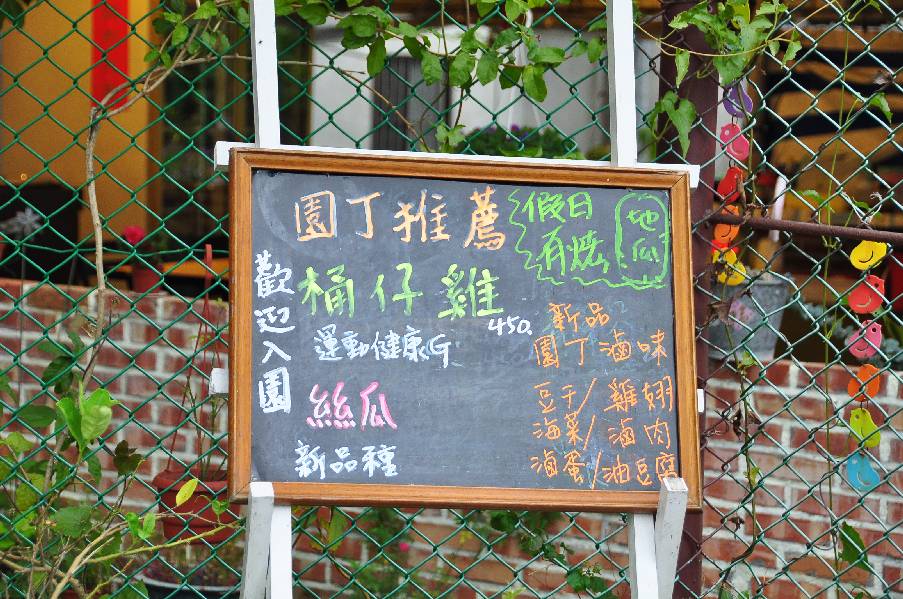 園丁推薦
假日
有烤
地瓜
歡迎入園
桶仔雞
450.
運動健康G
絲瓜
新品種
新品
園丁滷味
豆干/雞翅
海菜/滷肉
滷蛋/油豆腐